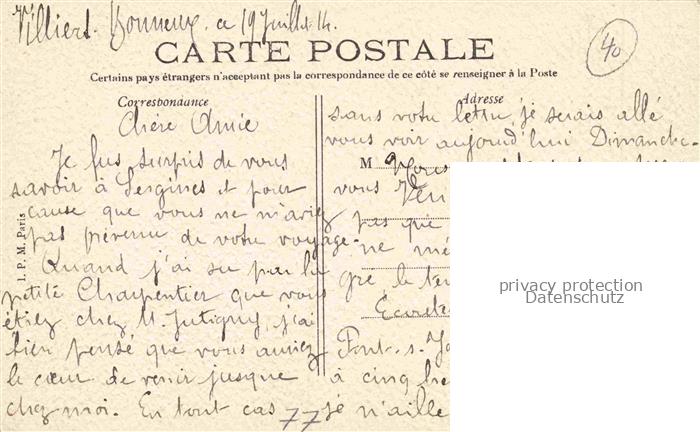 Villiers-Bonneux, ce 19 Juillet 14.
40
CARTE POSTALE
Certains pays étrangers n'acceptant pas la correspondance de ce côté se renseigner à la Poste
Correspondance
Chère Amie
Je fus surpris de vous
savoir à Sergines et pour
cause que vous ne m'aviez
pas prévenu de votre voyage.
Quand j'ai su par la
petite Charpentier que vous
étiez chez M. Jutigny, j'ai
bien pensé que vous auriez
le cœur de venir jusque
chez moi. En tout cas
77
I. P. M. Paris
Adresse
sans votre lettre, je serais allé
vous voir aujourd'hui Dimanche.
M
Vous
vous
pas que
ne
gré, le
Pont-s-
à cinq
je n'aille
privacy protection
Datenschutz